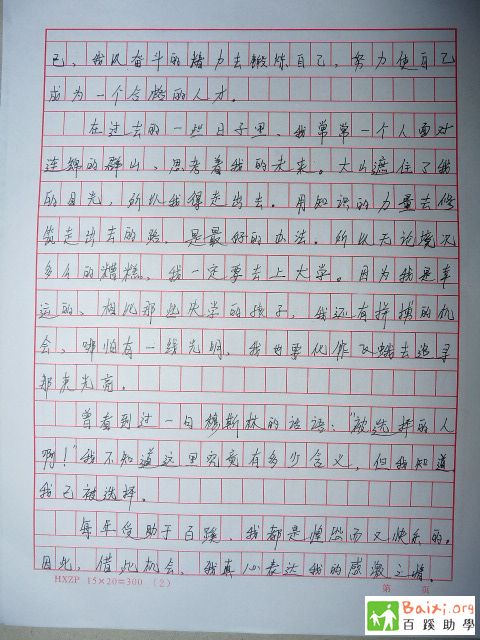 己，我以奋斗的精力去锻炼自己，努力使自己
成为一个合格的人才。
在过去的一些日子里，我常常一个人面对
连绵的群山，思考着我的未来。大山遮住了我
的目光，所以我得走出去。用知识的力量去修
筑走出去的路，是最好的办法。所以无论境况
多么的糟糕，我一定要去上大学。因为我是幸
运的，相比那些失学的孩子，我还有拼搏的机
会，哪怕有一线光明，我也要化作飞蛾去追寻
那束光亮。
曾看到过一句穆斯林的话语：“被选择的人
啊！”我不知道这里究竟有多少含义，但我知道
我已被选择。
每年受助于百蹊，我都是惶恐而又快乐的。
因此，借此机会，我真心表达我的感激之情。
HXZP 15×20=300 (2) 第 页
Baixi.org
百蹊助學